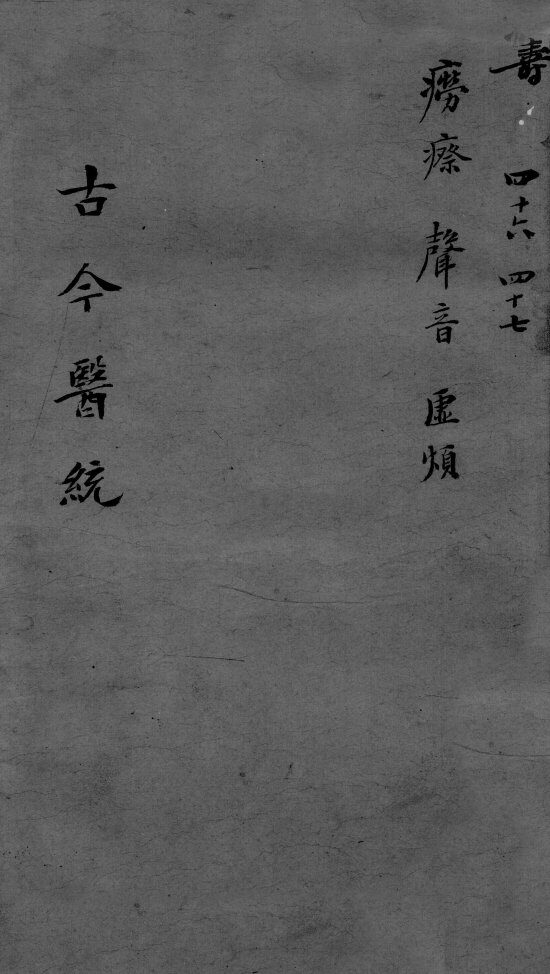 壽 四十六 四十七
癆瘵 聲音 虛煩
古今醫統